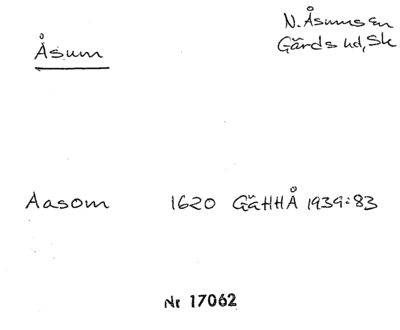 Åsum
N. Åsums sn
Gärds hd, Sk
Aasom 1620 GäHHÅ 1939:83
Nr 17062